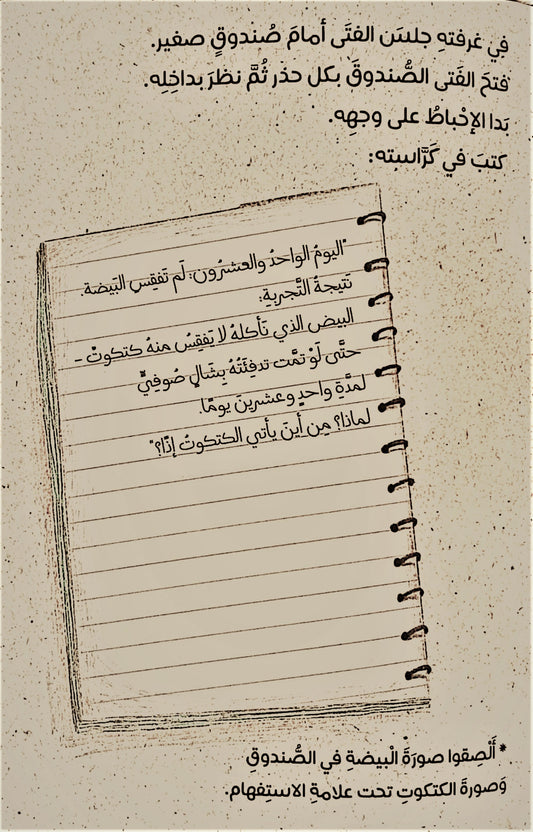 في غرفتهِ جلسَ الفتَى أمامَ صُندوقٍ صغير.
فتحَ الفَتى الصُّندوقَ بكل حذر ثُمَّ نظرَ بداخِلِه.
بَدا الإحْباطُ على وجهِه.
كتبَ في كَرَّاسته:
"اليومُ الواحدُ والعشرُون: لَم تَفقِسِ البَيضة.
نَتيجةُ التَّجرِبةِ:
البيض الذي نَأكلهُ لا يَفقِسُ منهُ كتكوتْ –
حتَّى لَوْ تمَّت تدفِئَتُهُ بِشَالٍ صُوفِيٍّ
لمدَّةِ واحدٍ وعشرينَ يومًا.
لماذا؟ مِن أينَ يأتي الكتكوتُ إذًا؟"
* أَلْصِقوا صورَةَ الْبيضةِ في الصُّندوقِ
وَصورةَ الكتكوتِ تحت علامةِ الاستِفهام.